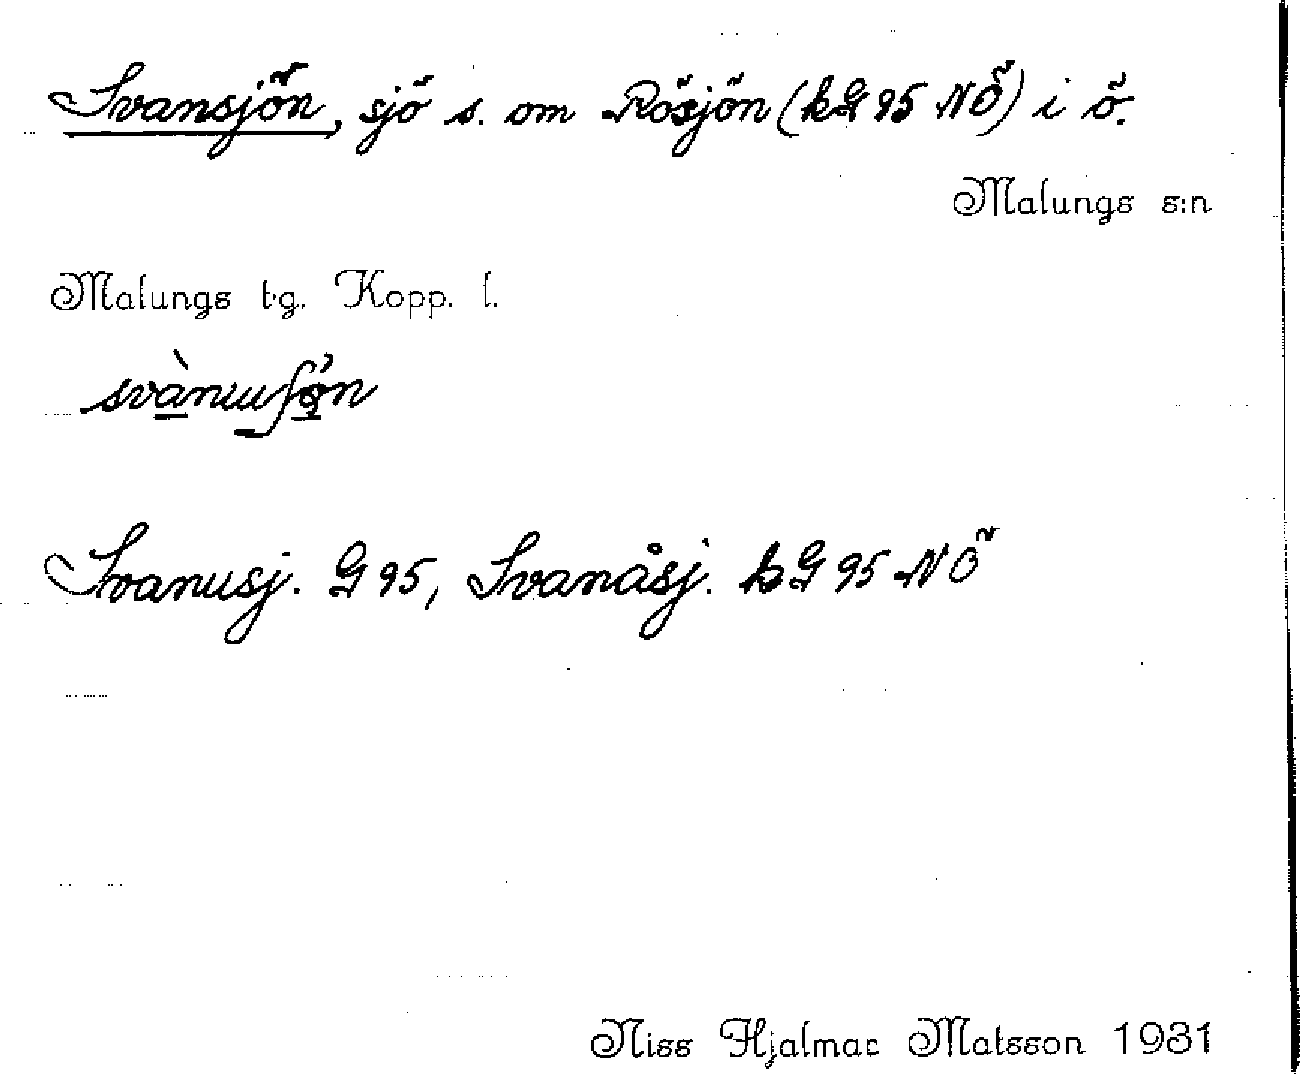 Svansjön, sjö s. om Rösjön (kG 95 NÖ) i ö.
Malungs s:n
Malungs tg. Kopp. l.
Svanusj. G 95, Svanåsj. kG 95 NÖ
Niss Hjalmar Matsson 1931